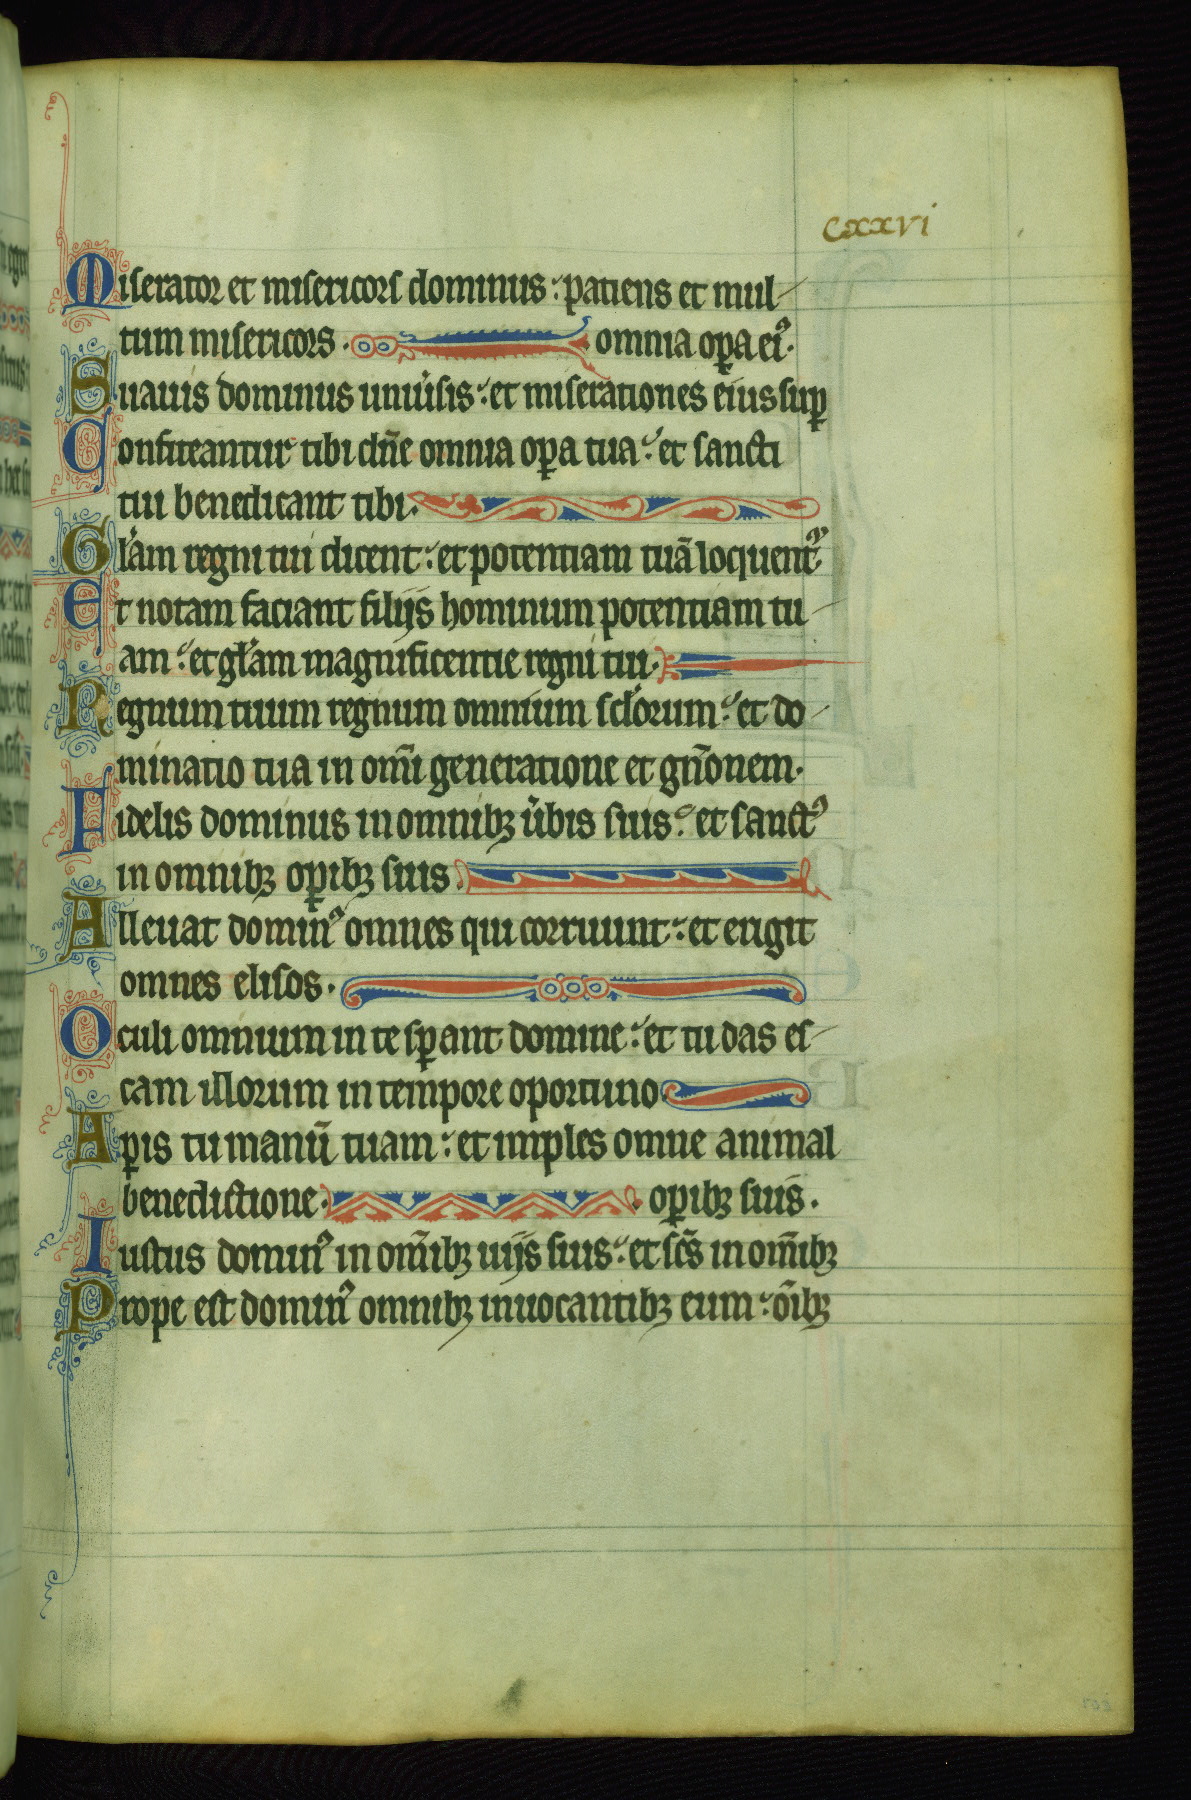 cxxvi
Miserator et misericors dominus : patiens et mul
tum misericors . omnia oꝑa eiꝰ .
Suauis dominus uniu̾sis : et miserationes eius suꝑ
Confiteantur tibi dn̄e omnia oꝑa tua : et sancti
tui benedicant tibi .
Gl̾am regni tui dicent : et potentiam tuā loquent᷑ .
Et notam faciant filijs hominum potentiam tu
am : et gl̾am magnificentie regni tui .
Regnum tuum regnum omnium sc̾lorum : et do
minatio tua in om̄i generatione et gn̄onem .
Fidelis dominus in omnibꝫ u̾bis suis : et sanctꝰ
in omnibꝫ oꝑibꝫ suis .
Alleuat dominꝰ omnes qui corruunt : et erigit
omnes elisos .
Oculi omnium in te sꝑant domine : et tu das es
cam illorum in tempore oportuno .
Aꝑis tu manū tuam : et imples omne animal
benedictione . oꝑibꝫ suis .
Iustus dominꝰ in om̄ibꝫ uijs suis : et sc̄s in om̄ibꝫ
Prope est dominꝰ omnibꝫ inuocantibꝫ eum : ōibꝫ